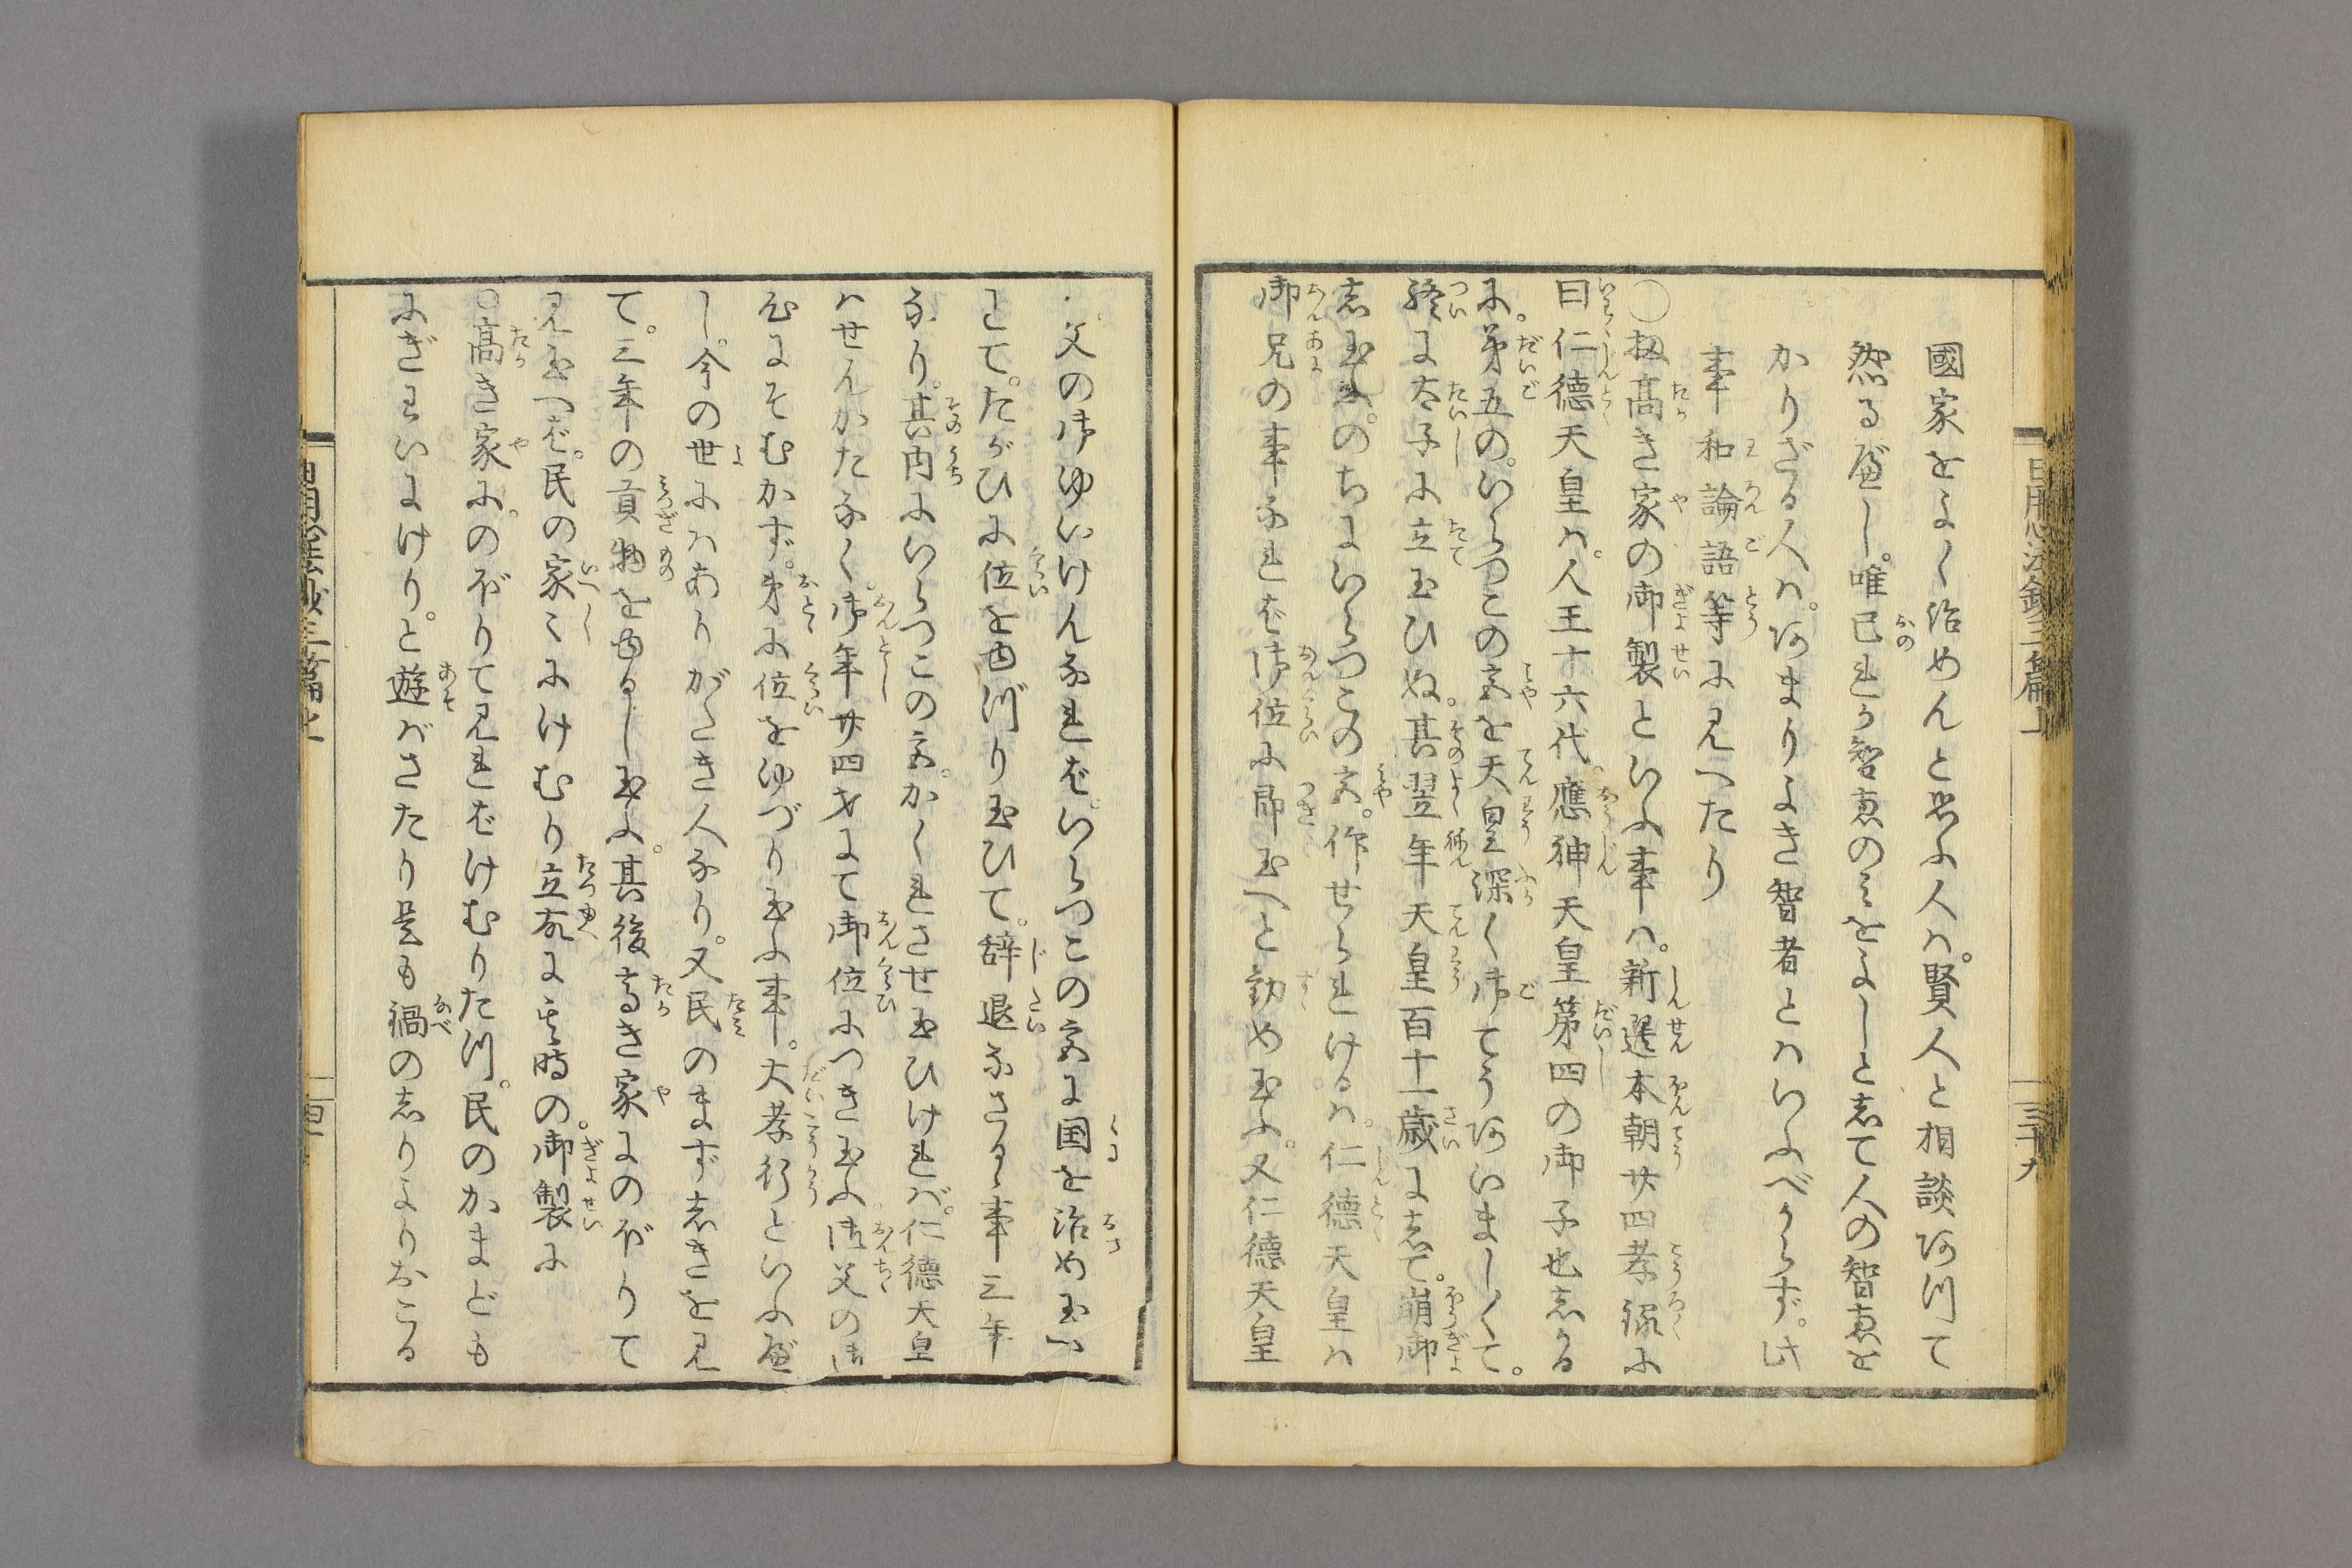 國家をよく治めんと思ふ人ハ。賢人と相談阿川て
然る歴し。唯已れが智恵のミをよしと志て人の智恵を
かりざる人ハ。阿まりよき智者とハいふべからず。此
事和論語等に見へたり
〇扨髙き家の御製といふ事ハ。新選本朝廿四孝録に
曰仁徳天皇ハ。人王十六代。應神天皇第四の御子也志かる
に。第五の。いらつこの宮を天皇深く御てう阿いましくて。
終に太子に立玉ひぬ。其翌年天皇百十一歳に志て。崩御
志玉ふ。のちにいらつこの宮。作せられけるハ。仁徳天皇ハ
御兄の事なれば御位に即玉へと勧め玉ふ。又仁徳天皇
ハ父の御ゆいけんなれば。いらつこの宮に国を治め玉へ
とて。たがひに位をゆ川り玉ひて。辞退なさるゝ事三年
なり。其内にいらつこの宮。かくれさせ玉ひけれバ。仁徳天皇
ハせんかたなく。御年廿四才にて御位につき玉ふ御父の御
心にそむかず。弟に位をゆづり玉ふ事。大孝行といふ歴
し。今の世にハありがたき人なり。又民のまず志きを見
て。三年の貢物をゆるし玉ふ。其後高き家にのぼりて
見玉へば。民の家〻にけむり立故に其時の。御製に
〇髙き家に。のぼりて見ればけむりた川。民のかまども
にぎわいにけり。と遊バさたり是も禍の志りよりおこる
日用心法鈔三篇上
三十九